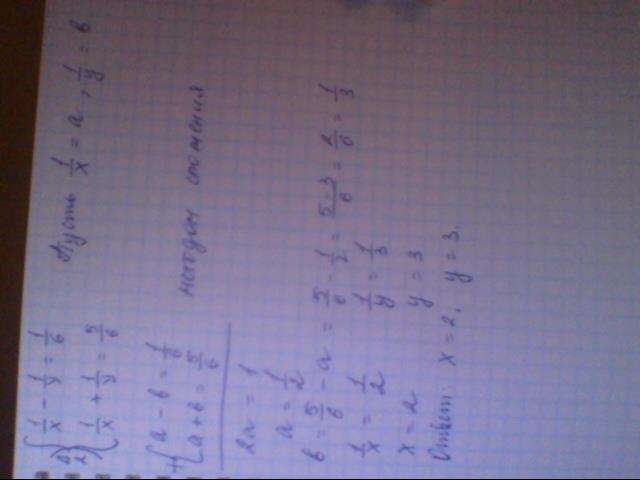 а) { 1/x - 1/y = 1/6     Пусть 1/x = a, 1/y = b
2) { 1/x + 1/y = 5/6
+ { a - b = 1/6     методом сложения
{ a + b = 5/6
2a = 1
a = 1/2
b = 5/6 - a = 5/6 - 1/2 = 5-3/6 = 2/6 = 1/3
1/x = 1/2     1/y = 1/3
x = 2     y = 3
Ответ: x = 2, y = 3.